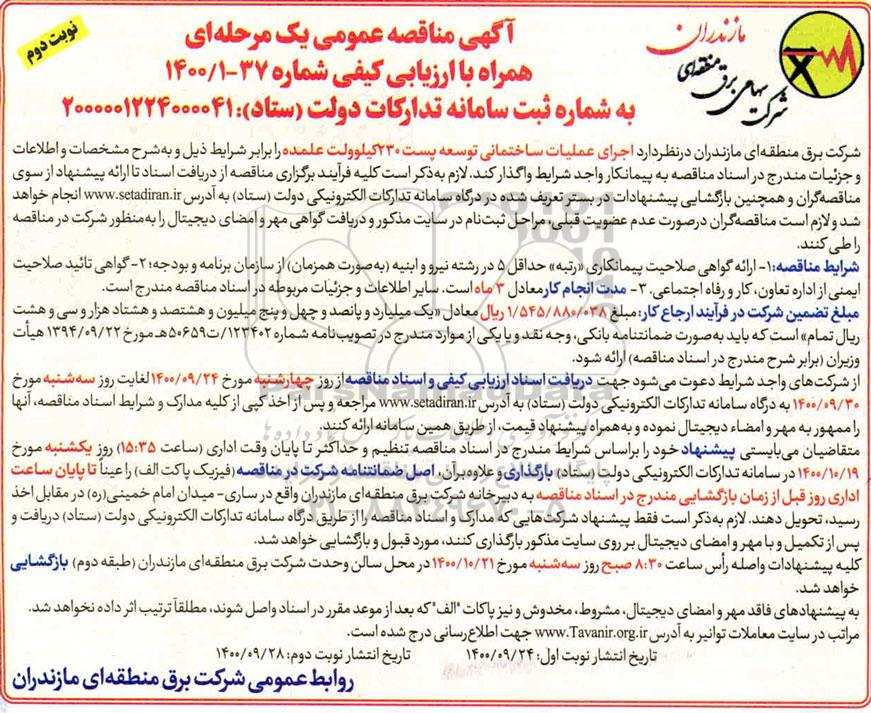 نوبت دوم
مازندران
شرکت سهامی برق منطقه‌ای
آگهی مناقصه عمومی یک مرحله‌ای
همراه با ارزیابی کیفی شماره ۳۷-۱۴۰۰/۱
به شماره ثبت سامانه تدارکات دولت (ستاد): ۲۰۰۰۰۰۱۲۲۴۰۰۰۰۴۱
شرکت برق منطقه‌ای مازندران درنظر دارد اجرای عملیات ساختمانی توسعه پست ۲۳۰کیلوولت علمده را برابر شرایط ذیل و به‌شرح مشخصات و اطلاعات
و جزئیات مندرج در اسناد مناقصه به پیمانکار واجد شرایط واگذار کند. لازم به‌ذکر است کلیه فرآیند برگزاری مناقصه از دریافت اسناد تا ارائه پیشنهاد از سوی
مناقصه‌گران و همچنین بازگشایی پیشنهادات در بستر تعریف شده در درگاه سامانه تدارکات الکترونیکی دولت (ستاد) به آدرس www.setadiran.ir انجام خواهد
شد و لازم است مناقصه‌گران درصورت عدم عضویت قبلی، مراحل ثبت‌نام در سایت مذکور و دریافت گواهی مهر و امضای دیجیتال را به‌منظور شرکت در مناقصه
را طی کنند.
شرایط مناقصه: ۱- ارائه گواهی صلاحیت پیمانکاری «رتبه» حداقل ۵ در رشته نیرو و ابنیه (به‌صورت همزمان) از سازمان برنامه و بودجه؛ ۲- گواهی تائید صلاحیت
ایمنی از اداره تعاون، کار و رفاه اجتماعی. ۳- مدت انجام کار معادل ۳ ماه است. سایر اطلاعات و جزئیات مربوطه در اسناد مناقصه مندرج است.
مبلغ تضمین شرکت در فرآیند ارجاع کار: مبلغ ۱/۵۴۵/۸۸۰/۰۳۸ ریال معادل «یک میلیارد و پانصد و چهل و پنج میلیون و هشتصد و هشتاد هزار و سی و هشت
ریال تمام» است که باید به‌صورت ضمانتنامه بانکی، وجه نقد و یا یکی از موارد مندرج در تصویب‌نامه شماره ۱۲۳۴۰۲/ت۵۰۶۵۹هـ مورخ ۱۳۹۴/۰۹/۲۲ هیأت
وزیران (برابر شرح مندرج در اسناد مناقصه) ارائه شود.
از شرکت‌های واجد شرایط دعوت می‌شود جهت دریافت اسناد ارزیابی کیفی و اسناد مناقصه از روز چهارشنبه مورخ ۱۴۰۰/۰۹/۲۴ لغایت روز سه‌شنبه مورخ
۱۴۰۰/۰۹/۳۰ به درگاه سامانه تدارکات الکترونیکی دولت (ستاد) به آدرس www.setadiran.ir مراجعه و پس از اخذ کپی از کلیه مدارک و شرایط اسناد مناقصه، آنها
را ممهور به مهر و امضاء دیجیتال نموده و به‌همراه پیشنهاد قیمت، از طریق همین سامانه ارائه کنند.
متقاضیان می‌بایستی پیشنهاد خود را براساس شرایط مندرج در اسناد مناقصه تنظیم و حداکثر تا پایان وقت اداری (ساعت ۱۵:۳۵) روز یکشنبه مورخ
۱۴۰۰/۱۰/۱۹ در سامانه تدارکات الکترونیکی دولت (ستاد) بارگذاری و علاوه‌برآن، اصل ضمانتنامه شرکت در مناقصه (فیزیک پاکت الف) را عیناً تا پایان ساعت
اداری روز قبل از زمان بازگشایی مندرج در اسناد مناقصه به دبیرخانه شرکت برق منطقه‌ای مازندران واقع در ساری- میدان امام خمینی(ره) در مقابل اخذ
رسید، تحویل دهند. لازم به‌ذکر است فقط پیشنهاد شرکت‌هایی که مدارک و اسناد مناقصه را از طریق درگاه سامانه تدارکات الکترونیکی دولت (ستاد) دریافت و
پس از تکمیل و با مهر و امضای دیجیتال بر روی سایت مذکور بارگذاری کنند، مورد قبول و بازگشایی خواهد شد.
کلیه پیشنهادات واصله رأس ساعت ۸:۳۰ صبح روز سه‌شنبه مورخ ۱۴۰۰/۱۰/۲۱ در محل سالن وحدت شرکت برق منطقه‌ای مازندران (طبقه دوم) بازگشایی
خواهد شد.
به پیشنهادهای فاقد مهر و امضای دیجیتال، مشروط، مخدوش و نیز پاکات "الف" که بعد از موعد مقرر در اسناد واصل شوند، مطلقاً ترتیب اثر داده نخواهد شد.
مراتب در سایت معاملات توانیر به آدرس www.Tavanir.org.ir جهت اطلاع‌رسانی درج شده است.
تاریخ انتشار نوبت اول: ۱۴۰۰/۰۹/۲۴ تاریخ انتشار نوبت دوم: ۱۴۰۰/۰۹/۲۸
روابط عمومی شرکت برق منطقه‌ای مازندران